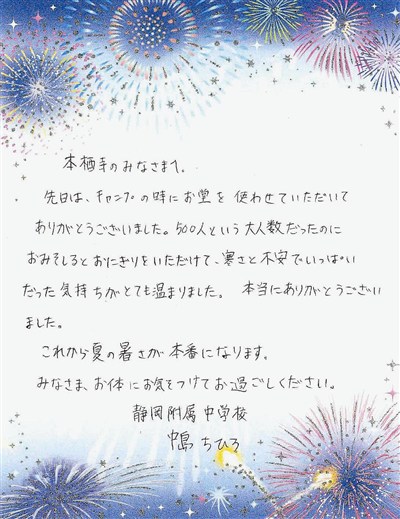 本栖寺のみなさまへ。
先日は、キャンプの時にお堂を使わせていただいて
ありがとうございました。500人という大人数だったのに
おみそしるとおにぎりをいただけて、寒さと不安でいっぱい
だった気持ちがとても温まりました。本当にありがとうござい
ました。
これから夏の暑さが本番になります。
みなさま、お体にお気をつけてお過ごしください。
静岡附属中学校
ちひろ